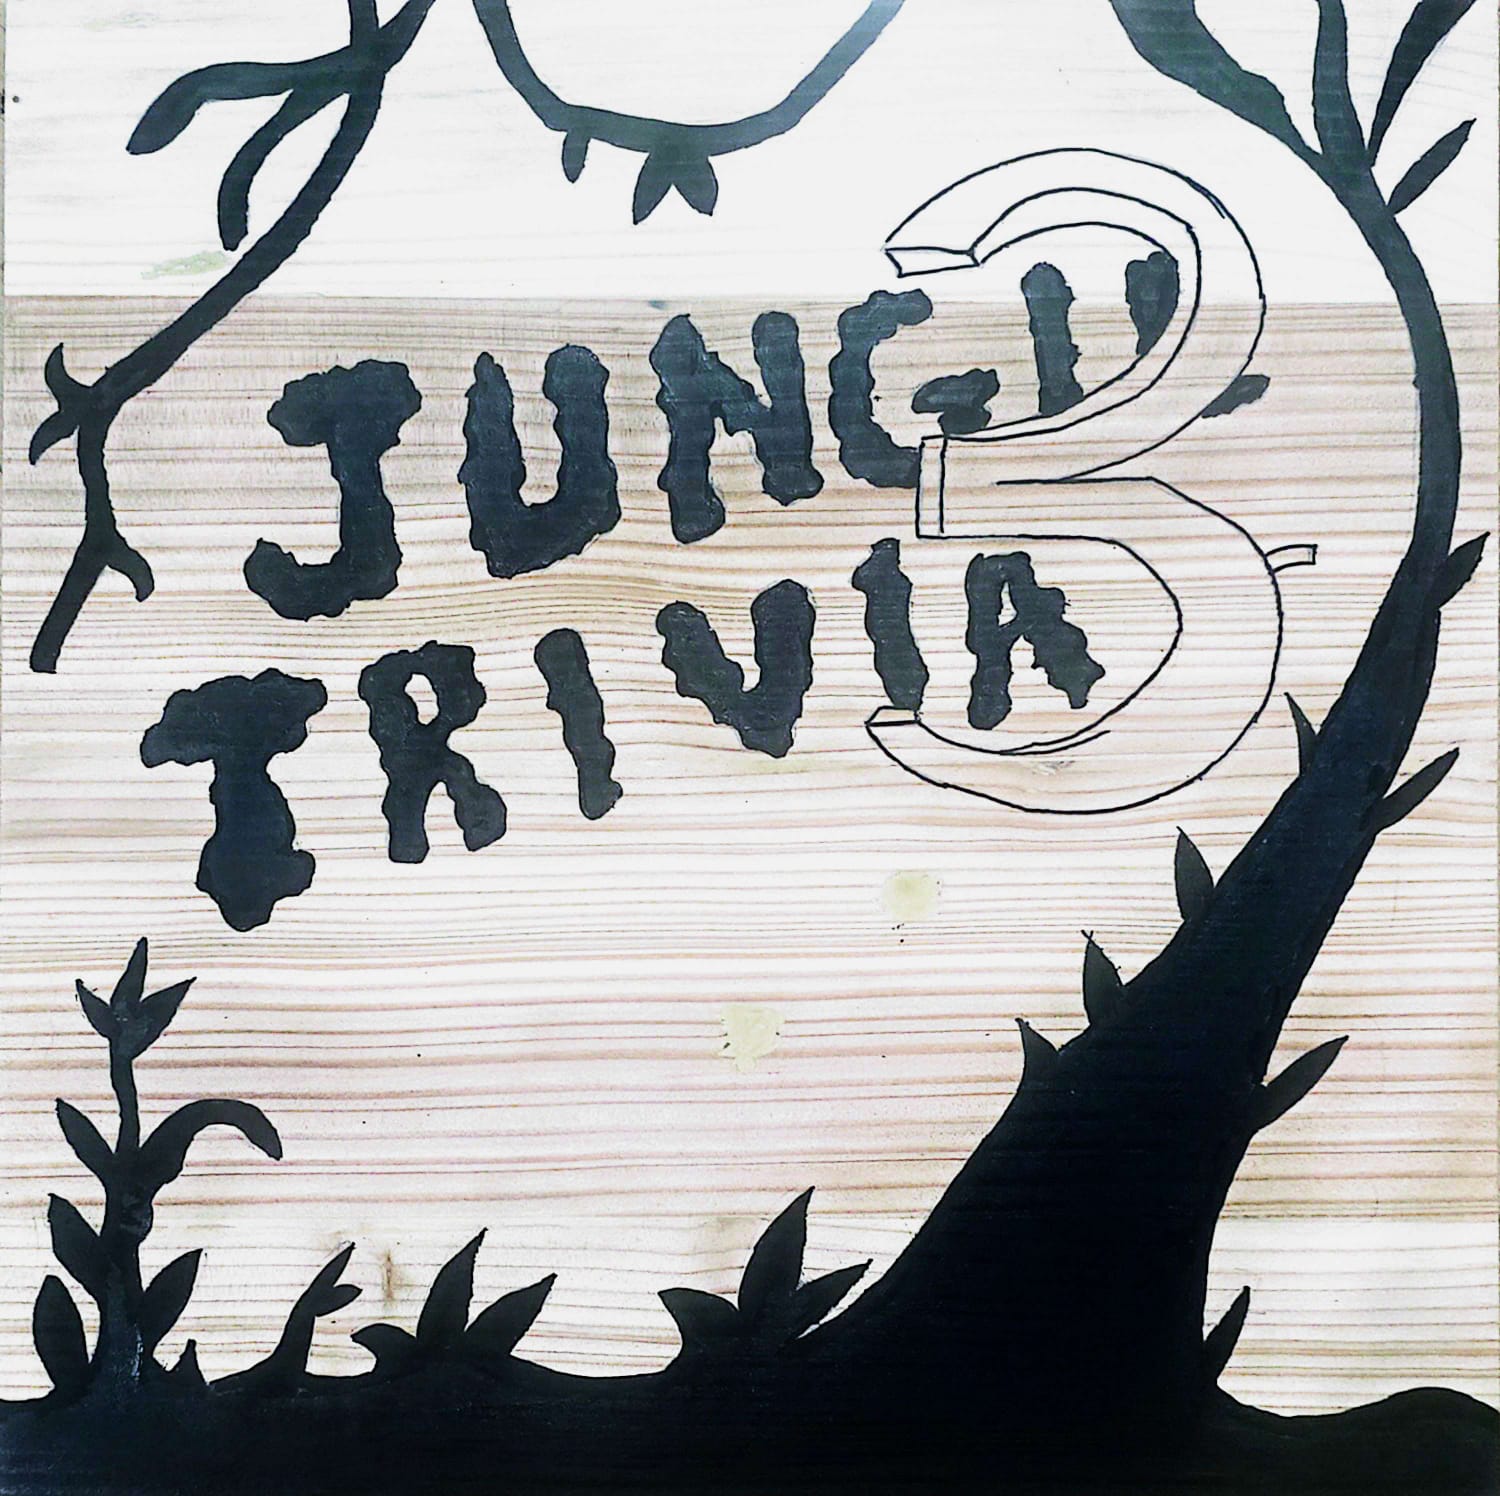 JUNGLE
TRIVIA
3